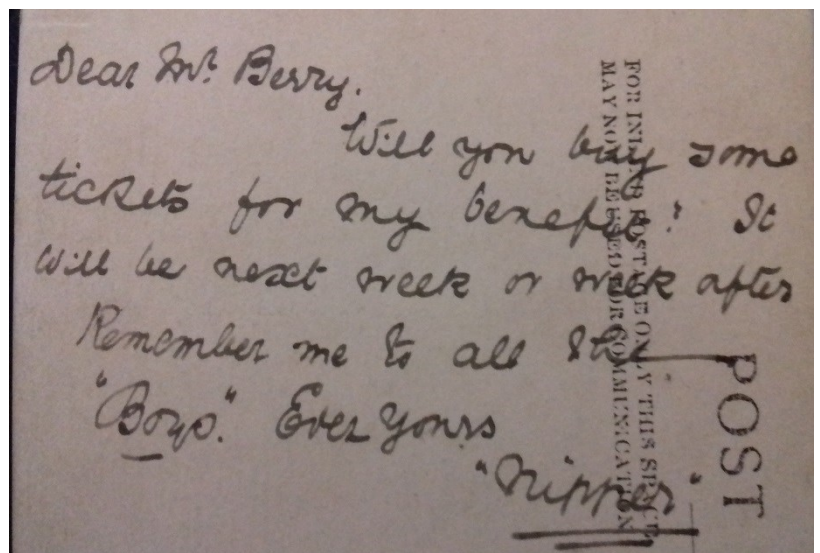 Dear Mr. Berry.
Will you buy some
tickets for my benefit? It
will be next week or week after
Remember me to all the
"Boys". Ever Yours
"Nipper"
FOR INLAND POSTAGE ONLY THIS SPACE
MAY NOT BE USED FOR COMMUNICATION
POST